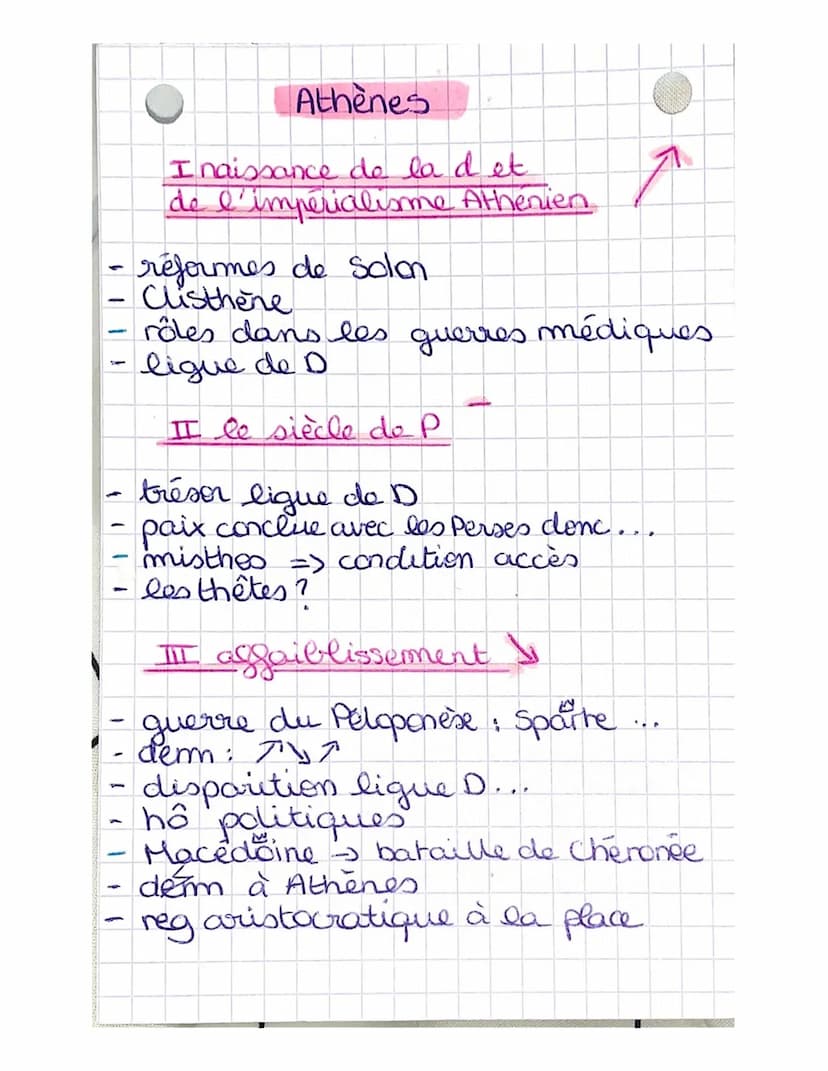 Athènes
I naissance de la d et
de l'impérialisme Athénien ↗
- réformes de Solon
- Clisthène
- rôles dans les guerres médiques
- ligue de D
II le siècle de P
- trésor ligue de D
- paix conclue avec les Perses donc...
- misthos => condition accès
- les thêtes ?
III affaiblissement ↘
- guerre du Péloponèse : Sparte ...
- dém : ↗↘↗
- disparition ligue D...
- hô politiques
- Macédoine -> bataille de Chéronée
- dém à Athènes
- reg aristocratique à la place